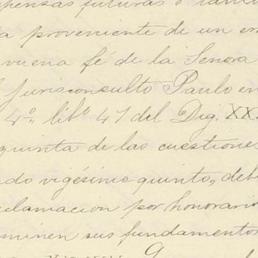 pensas futuras o
a proveniente de un er
buena fé de la Senora
l Jurisconsulto Paulo en
4º, libº 47 del Dig. XX
quinta de las cuestione
do vigésimo quinto, deb
clamacion por honorario
minen sus fundamentos